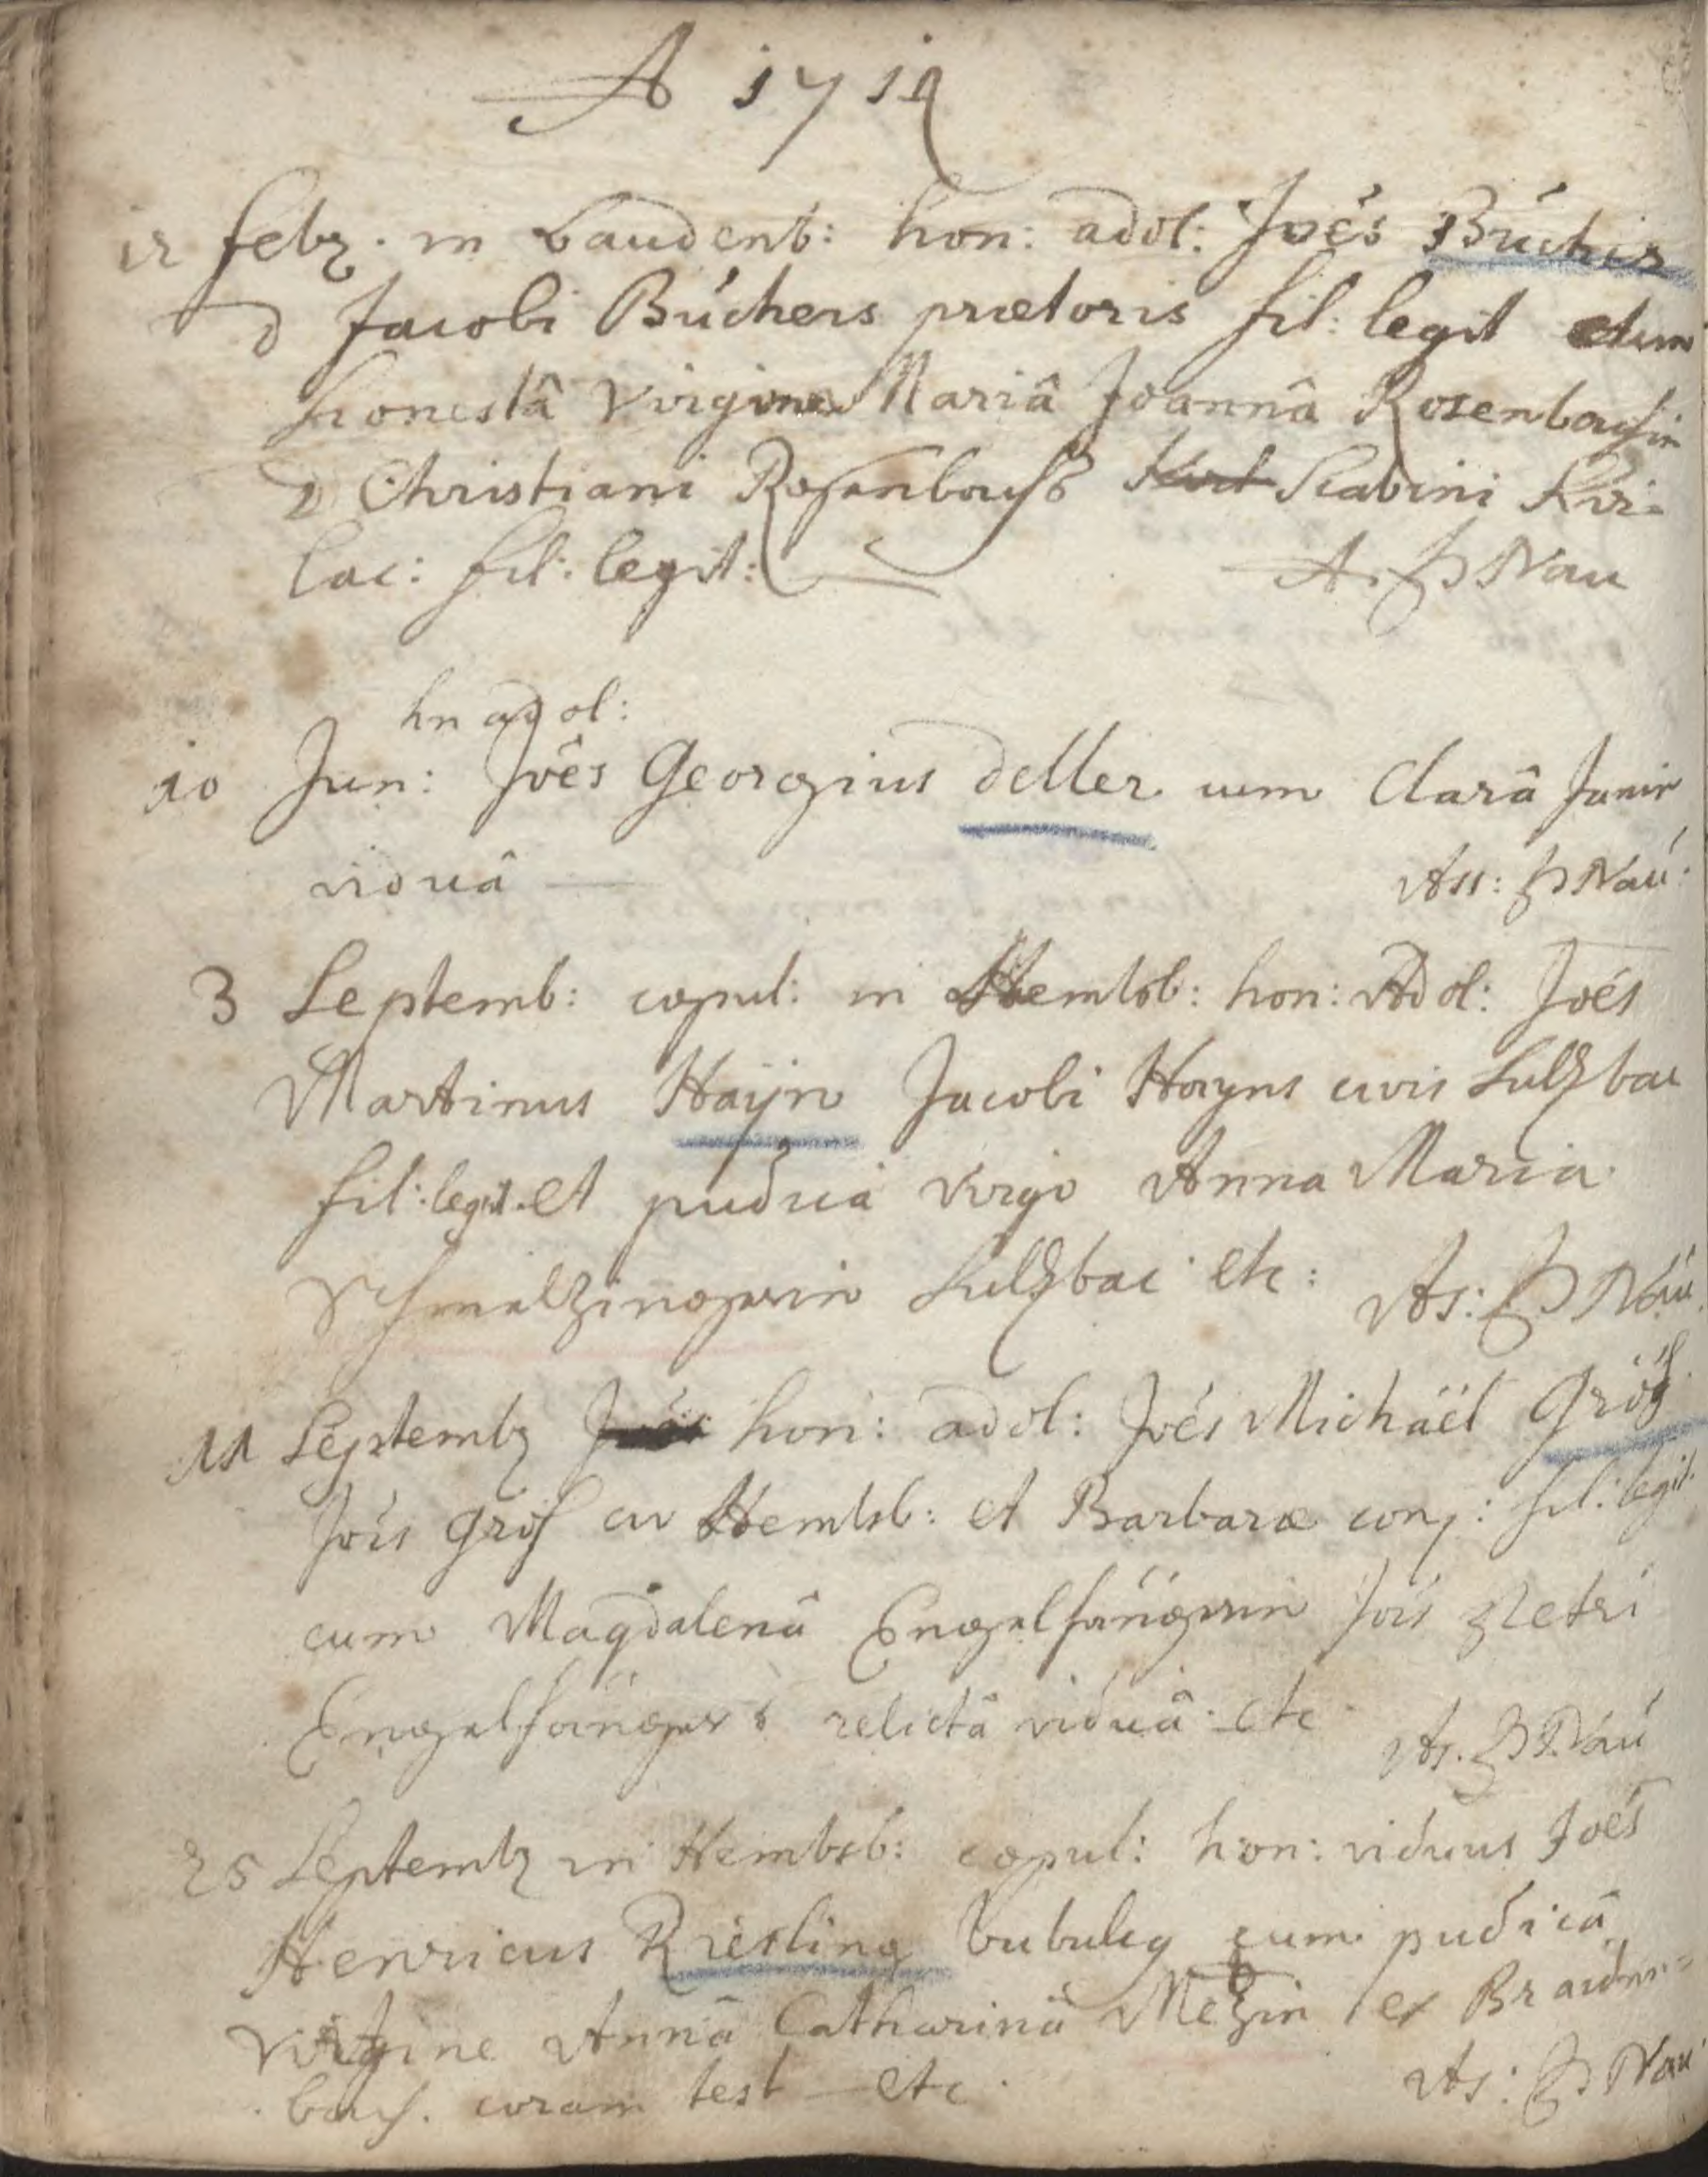 A 1712
12 febr. in Laudenb: hon: adol: Joés Bücher
D Jacobi Büchers prætoris fil: legit cum
honestâ Virgine Mariâ Joannâ Rosenbachin
D Christiani Rosenbachs Scabini Kir-
lac: fil: legit: A. P Nau
hn adol:
10 Jun: Joês Georgius Deller cum Clarâ
viduâ Ass: P Naú.
3 Septemb: copul: in Hembsb: hon: Adol: Joés
Martinus Haÿn Jacobi Hayns civis Sulzbac
fil: legit. et pudica virgo Anna Maria
Schmalzingerin Sulzbac etc: As: P Náu
11 Septembr hon: adol: Joés Michäel Größ
Jois Größ civ Hembsb: et Barbaræ conj: fil: legit.
cum Magdalenâ Engelfängerin Jois Petri
Engelfängers relictâ viduâ etc As. P Náu
25 Septembr in Hembsb: copul: hon: viduus Joés
Henricus Riesling bubulcq cum pudicâ
Virgine Annâ Catharinâ Mezin ex Braiden-
bach. coram test etc. As: P Nau